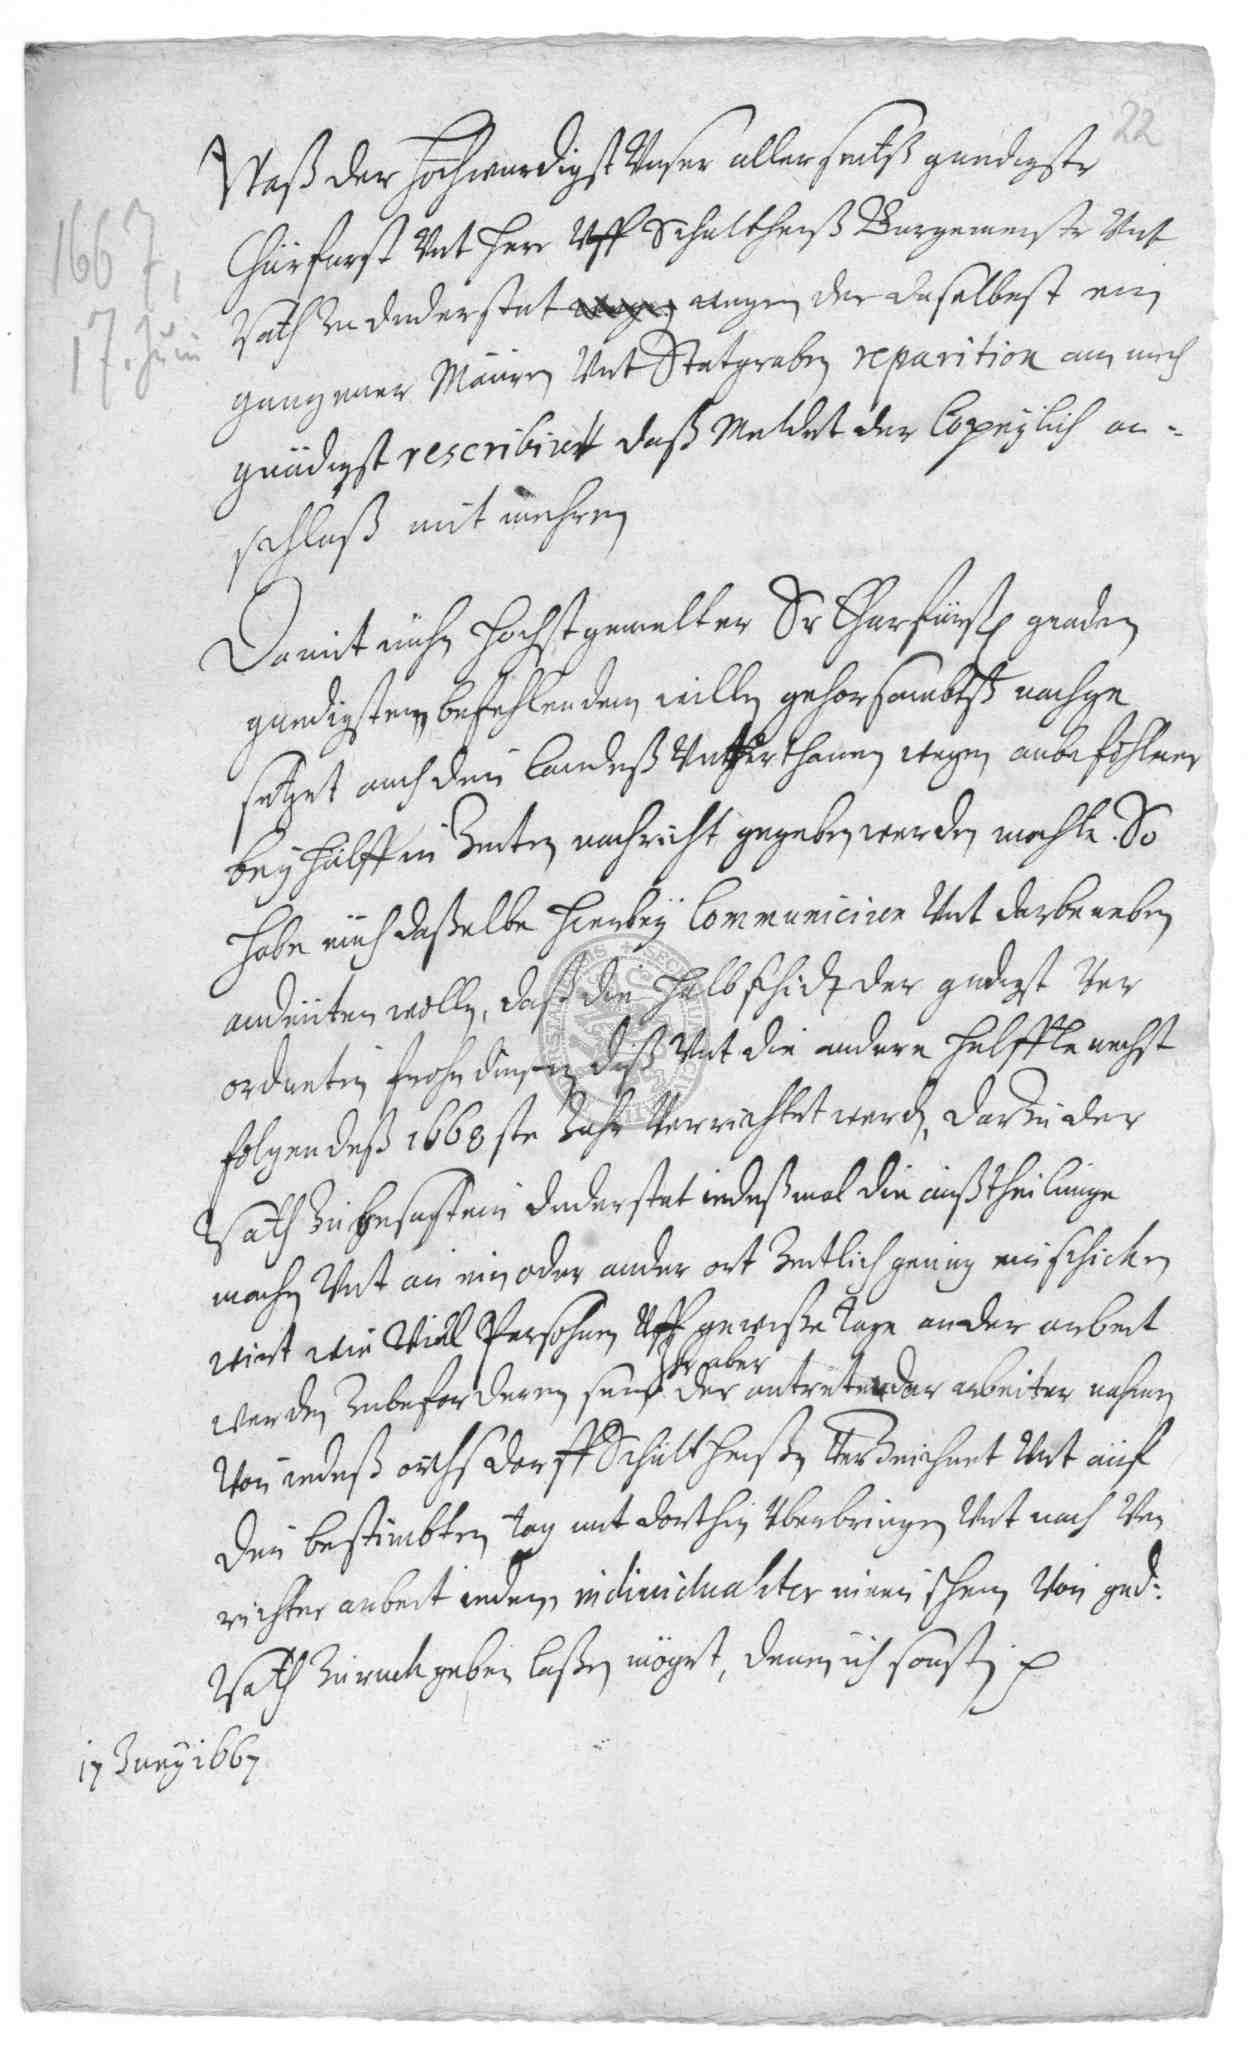 22
1667,
17. Juni
Waß der Hochwurdigst Unser allerseits gnedigste
Churfurst Unt Herr Uff Schultheiß Burgemeiste Unt
Rath zu duderstat wegen der daselbest ein
gangener Mauren Unt Statgraben reparition an mich
gnädigst rescribirt daß Meldet der Copeylich an-
schluß mit mehren
Damit nuhn Hochstgemelter Sr Churfürstl gnaden
gnedigstem befehlendem willn gehorsambst nachge
setzet auch den Landeß Unterthanen wegen anbefohlner
beyhülff in Zeiten nachricht gegeben werden mochte. So
habe euch daßelbe hierbey Communiciren Unt darbeneben
andeuten wolln, daß die Halbschidt der gnedigst Ver
ordneten frohn dinsten diß Unt die andere Helffte nechst
folgendeß 1668ste Jahr Verrichtet werdn, darzu der
Rath zu besagtem duderstat iedeßmal die außtheilunge
machn Unt an ein oder ander ort Zeitlich genug einschicken
wirt wie Viell Persohnen Uff gewiße Tage an der arbeit
werden Zubeforderen sein Ihr aber der antretendar arbeiter nahmen
Von iedeß orths dorff Schultheißn Verzeichnet Unt auf
den bestimbten tag mit dorthin Uberbringen Unt nach Ver
richter arbeit iedem individualiter einen schein Von ged:
Rath Zuruck geben laßen möget, denen ich sonsten p
17 Juny 1667